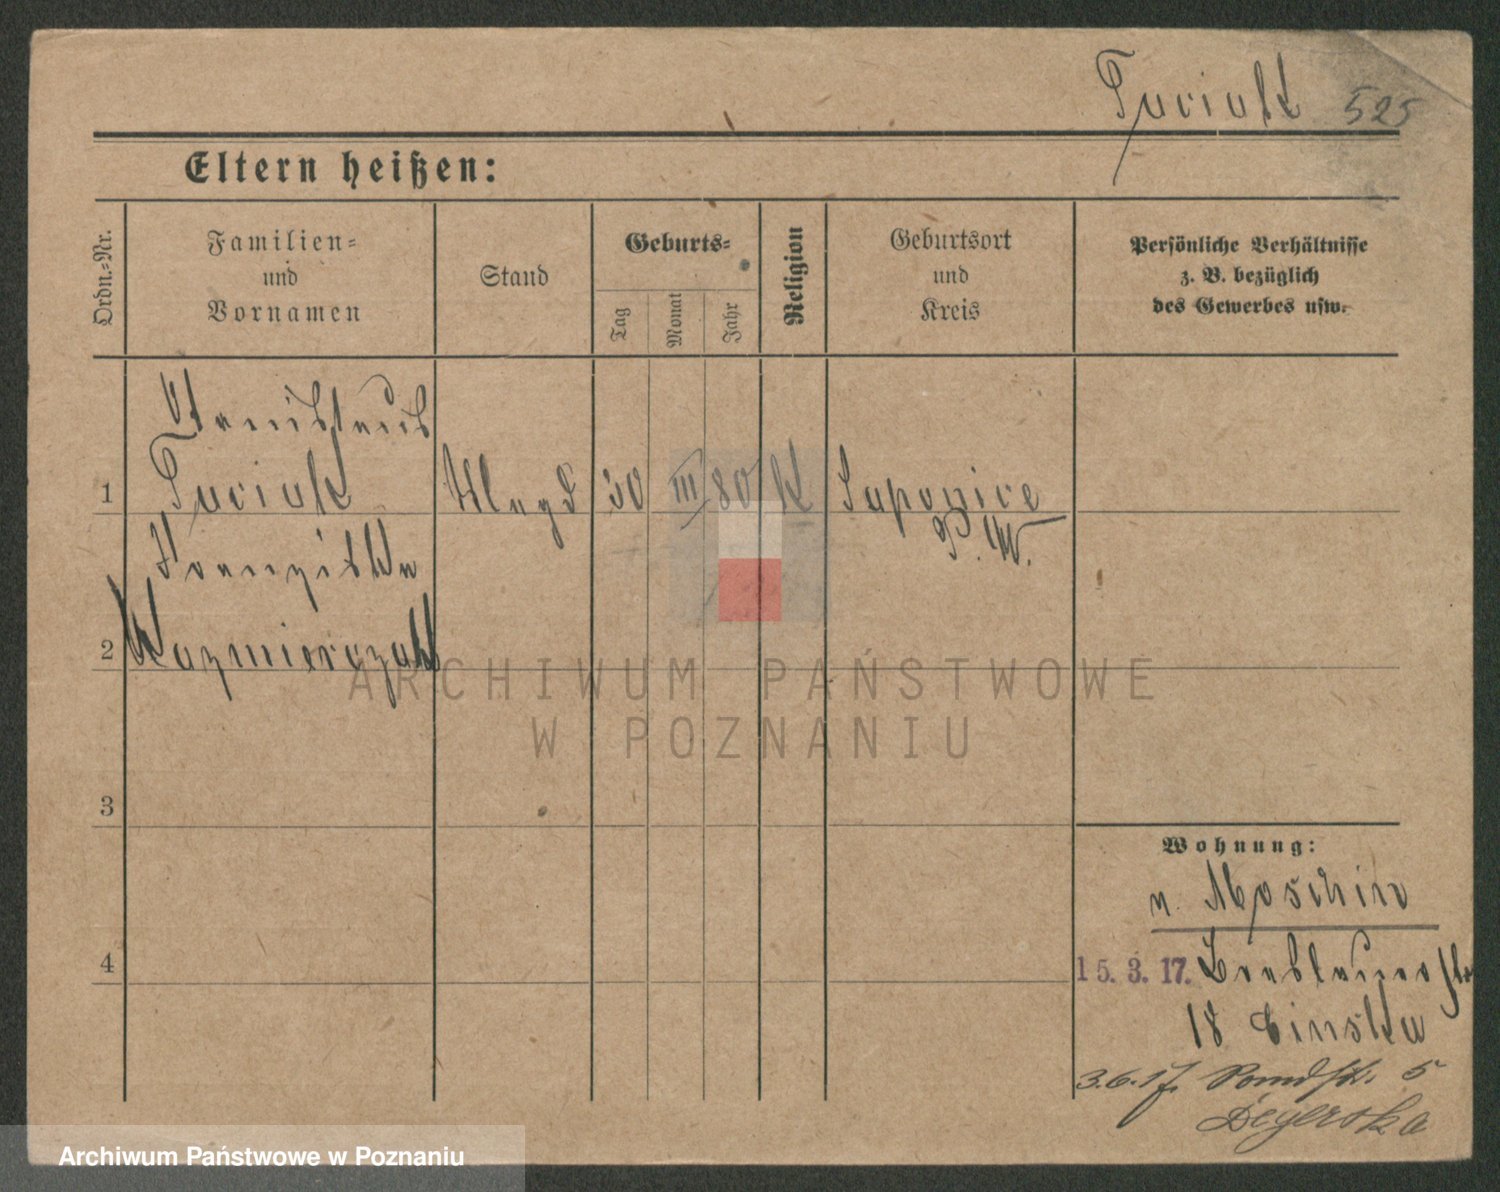 Tuciak 525
Eltern heißen:
Ordn.-Nr.
Familien-
und
Vornamen
Stand
Geburts-
Tag
Monat
Jahr
Religion
Geburtsort
und
Kreis
Persönliche Verhältnisse
z. B. bezüglich
des Gewerbes usw.
Stanislaus
Tuciak
1
Magd 30 III 80 K
P. W.
Franziska
2 Kazmierczak
3
Wohnung:
n. Moschin
4
15. 3. 17. Breslauerstr
18
3.6.17. 5
ARCHIWUM PAŃSTWOWE
W POZNANIU
Archiwum Państwowe w Poznaniu